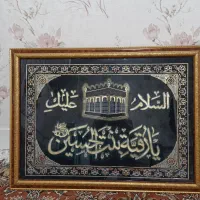 السلام عليك
يا رقية بنت الحسين